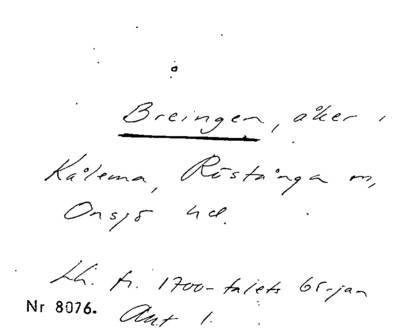 Breingen, åker i
Kålema, Röstånga sn,
Onsjö hd.
Lh. fr. 1700-talets
Nr 8076. Akt 1.